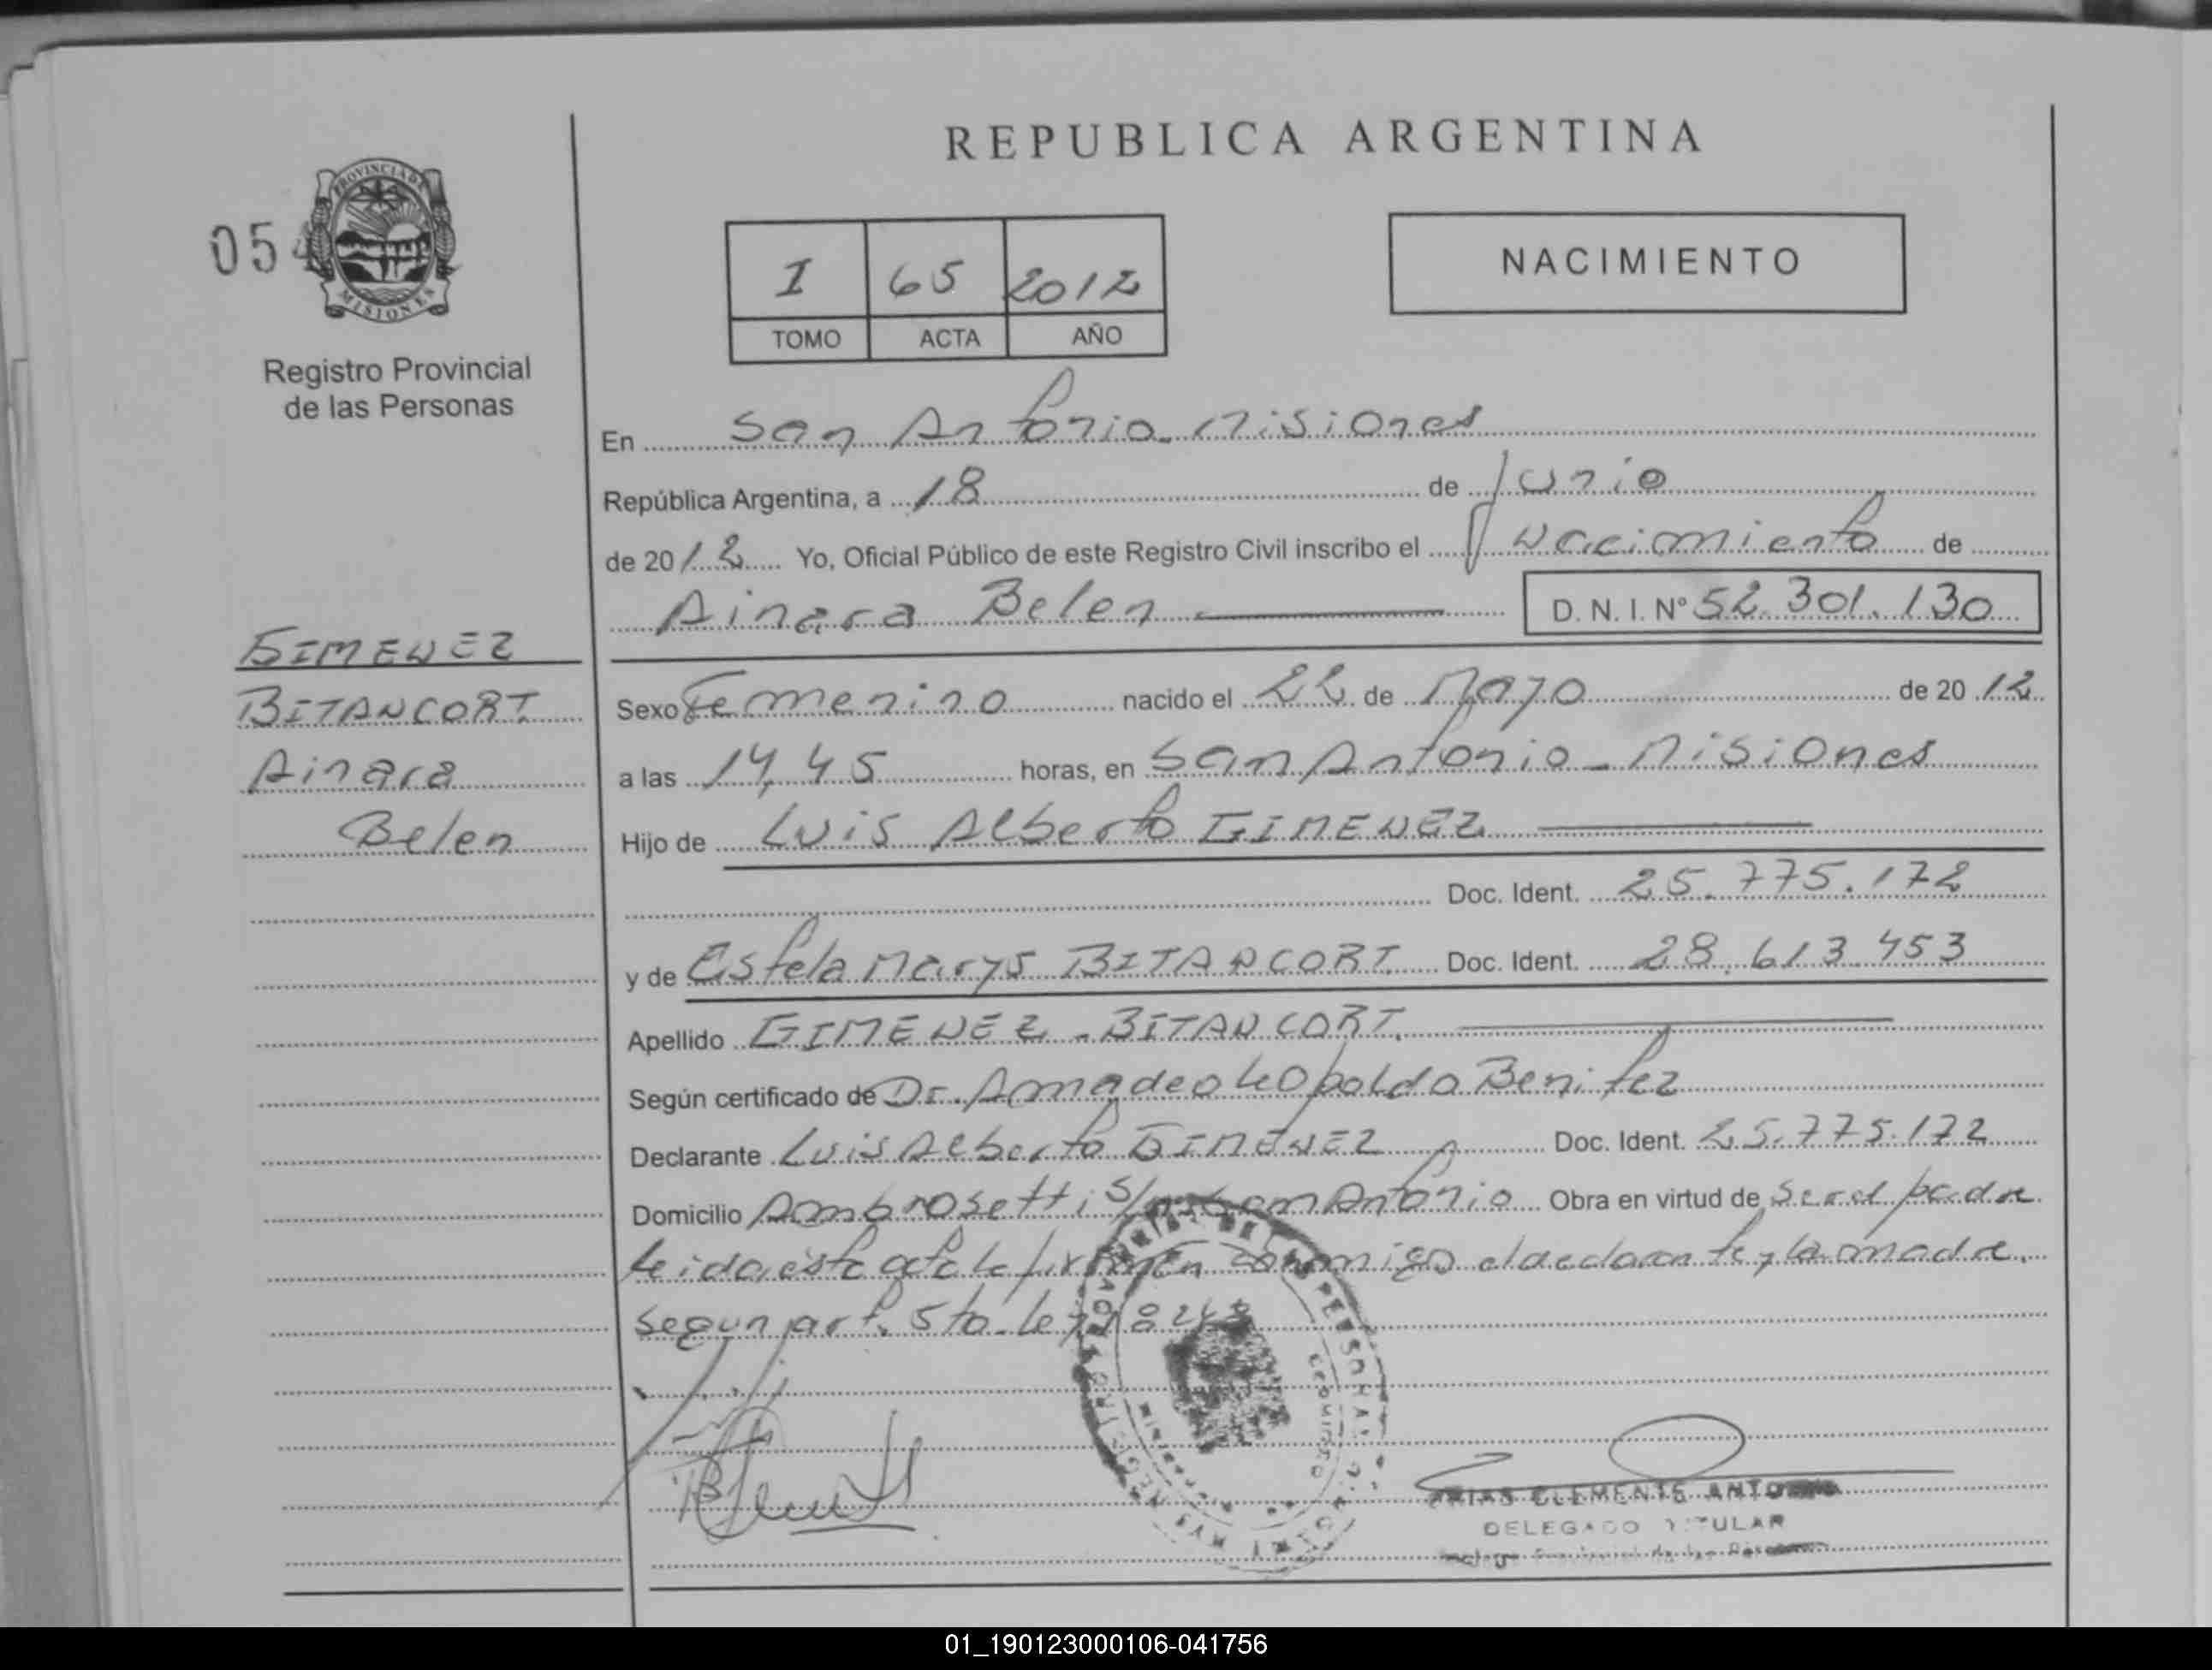 REPUBLICA ARGENTINA
054
PROVINCIA DE
MISIONES
Registro Provincial
de las Personas
I 65 2012
TOMO ACTA AÑO
NACIMIENTO
En San Antonio - Misiones
República Argentina, a 18 de Junio
de 2012 Yo, Oficial Público de este Registro Civil inscribo el Nacimiento de
Ainara Belen D. N. I. Nº 52.301.130
GIMENEZ
BITANCORT
Ainara
Belen
Sexo Femenino nacido el 22 de Mayo de 2012
a las 14,45 horas, en San Antonio - Misiones
Hijo de Luis Alberto GIMENEZ
Doc. Ident. 25.775.172
y de Estela Marys BITANCORT Doc. Ident. 28.613.453
Apellido GIMENEZ - BITANCORT.
Según certificado de Dr. Amadeo Leopoldo Benitez
Declarante Luis Alberto GIMENEZ Doc. Ident. 25.775.172
Domicilio Ambrosetti S/n San Antonio Obra en virtud de ser el padre
leida ésta acta la firman conmigo el declarante y la madre.
Segun art. 5to. Ley 18248
ARIAS CLEMENTE ANTONIO
DELEGADO TITULAR
01_190123000106-041756